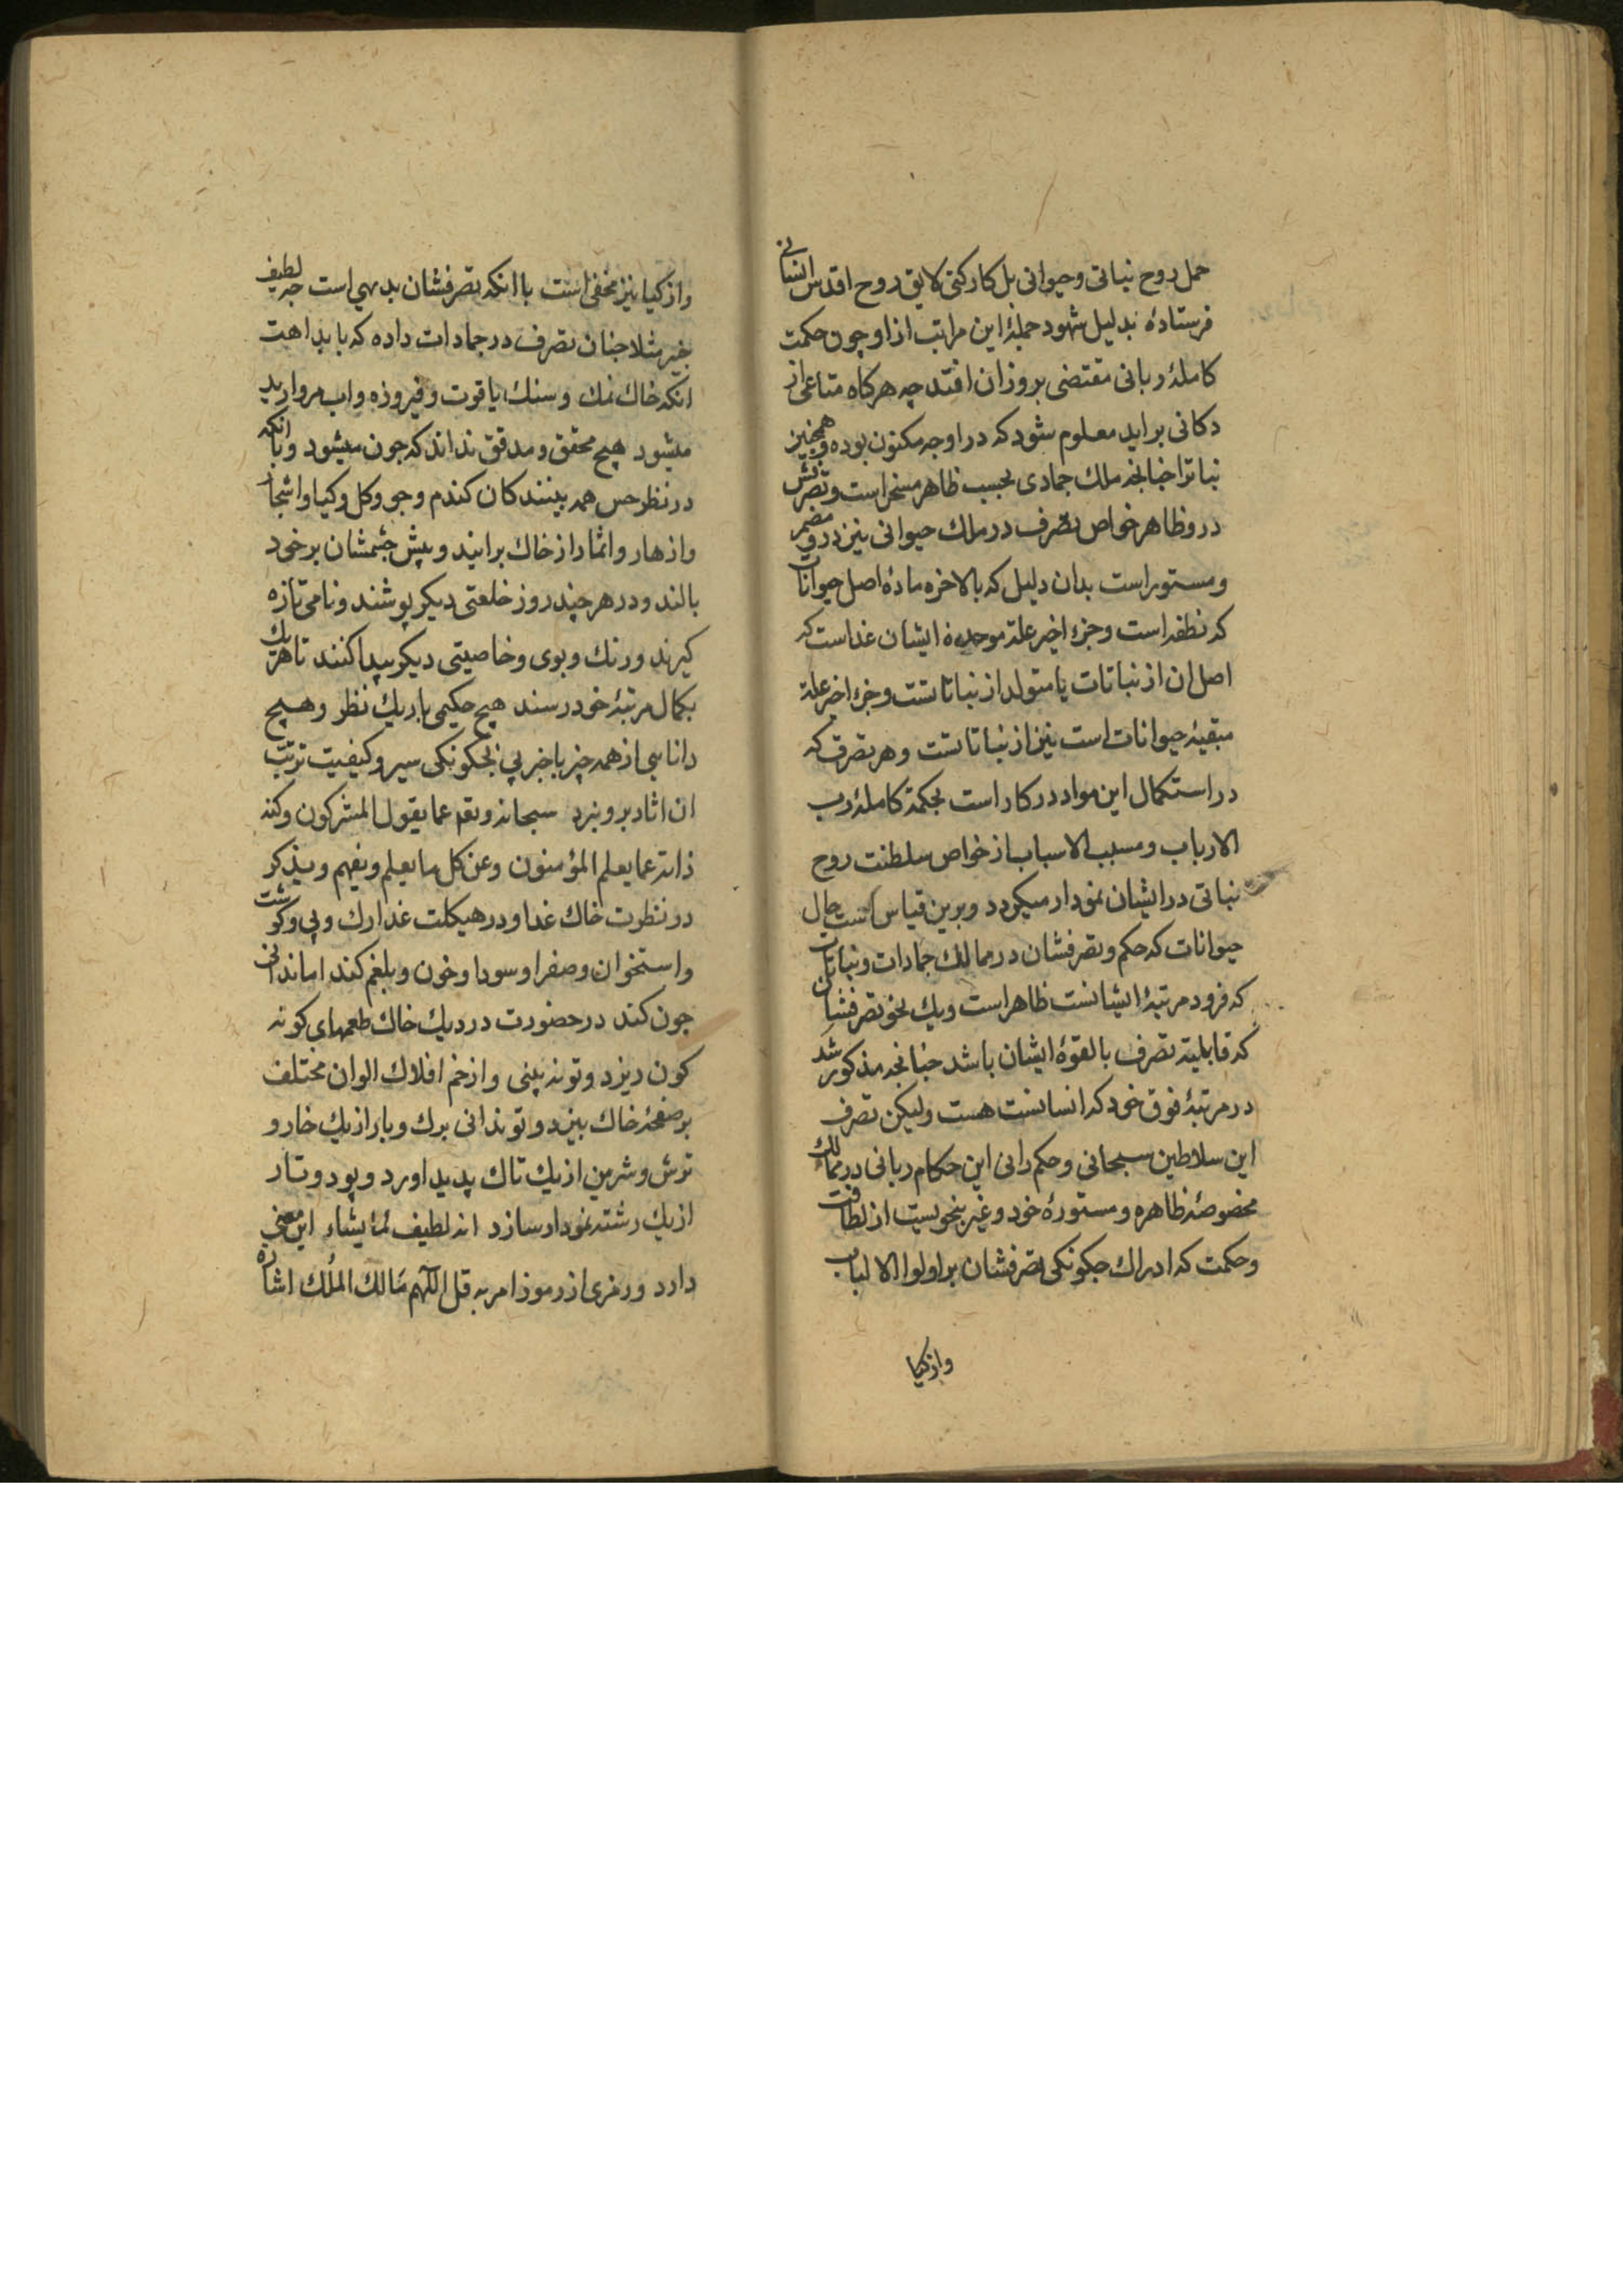 حمل روح نباتی و حیوانی بل کارکنی لایق روح اقدس انسانی
فرستادهٔ بدلیل شهود جملهٔ این مراتب از او چون حکمت
کاملهٔ ربانی مقتضی بروز ان افتد چه هرکاه متاعی از
دکانی براید معلوم شود که در او جه مکنون بوده و همچنین
نباترا جنانجه ملک جمادی بحسب ظاهر مسخر است و تصرفش
در و ظاهر خواص تصرف در ملک حیوانی نیز درو مضمر
و مستور است بدان دلیل که بالاخره مادهٔ اصل حیوانات
که نطفه است و جزء اخیر علة موجدهٔ ایشان غذاست که
اصل ان از نباتات یا متولد از نباتاتست و جزء اخر علة
مبقیهٔ حیوانات است نیز از نباتاتست و هر تصرف که
در استکمال این مواد در کار است بحکمة کاملهٔ رب
الارباب و مسبب الاسباب از خواص سلطنت روح
نباتی در ایشان نمودار میکردد و برین قیاس است حال
حیوانات که حکم و تصرفشان در ممالک جمادات و نباتات
که فرود مرتبهٔ ایشانست ظاهر است و یک نحو تصرفشان
که قابلیة تصرف بالقوهٔ ایشان باشد جنانجه مذکور شد
در مرتبهٔ فوق خود که انسانست هست ولیکن تصرف
این سلاطین سبحانی و حکم رانی این حکام ربانی در ممالک
مخصوصهٔ ظاهره و مستورهٔ خود و غیر بنحویست از لطافت
و حکمت که ادراک جکونکی تصرفشان بر اولوا الالباب
واز کیا
واز کیا نیز مخفی است با انکه تصرفشان بدیهی است جه لطیف
خبیر مثلا جنان تصرف در جمادات داده که با بداهت
انکه خاک نمک و سنک یاقوت و فیروزه و اب مروارید
میشود هیج محقق و مدقق نداند که جون میشود و با انکه
در نظر حس همه بینندکان کندم و جو و کل و کیا و اشجار
و ازهار و اثمار از خاک برایند و پیش جشمشان بر خود
بالند و در هر چند روز خلعتی دیکر پوشند و نامی تازه
کیرند و رنک و بوی و خاصیتی دیکر پیدا کنند تا هر یک
بکمال مرتبهٔ خود رسند هیج حکیمی باریک نظر و هیج
دانایی از همه چیز باخبر پی بجکونکی سیر و کیفیت ترتب
ان اثار برو نبرد سبحانه و تعه عما یقول المشرکون و کنه
ذاته عما یعلم المؤمنون و عن کل ما یعلم و یفهم و یذکر
در نظرت خاک غذا و در هیکلت غذا رک و پی و کوشت
و استخوان و صفرا و سودا و خون و بلغم کند اما ندانی
جون کند در حضورت در دیک خاک طعمهای کونه
کون ریزد و تو نه بینی و از خم افلاک الوان مختلف
بر صفحهٔ خاک بیزد و تو ندانی برک و بار از یک خار و
ترش و شرین از یک تاک پدید اورد و پود و تار
از یک رشته نمودار سازد انه لطیف لما یشاء این معنی
دارد و رمزی از رموز امر به قل اللهم مالک الملک اشاره